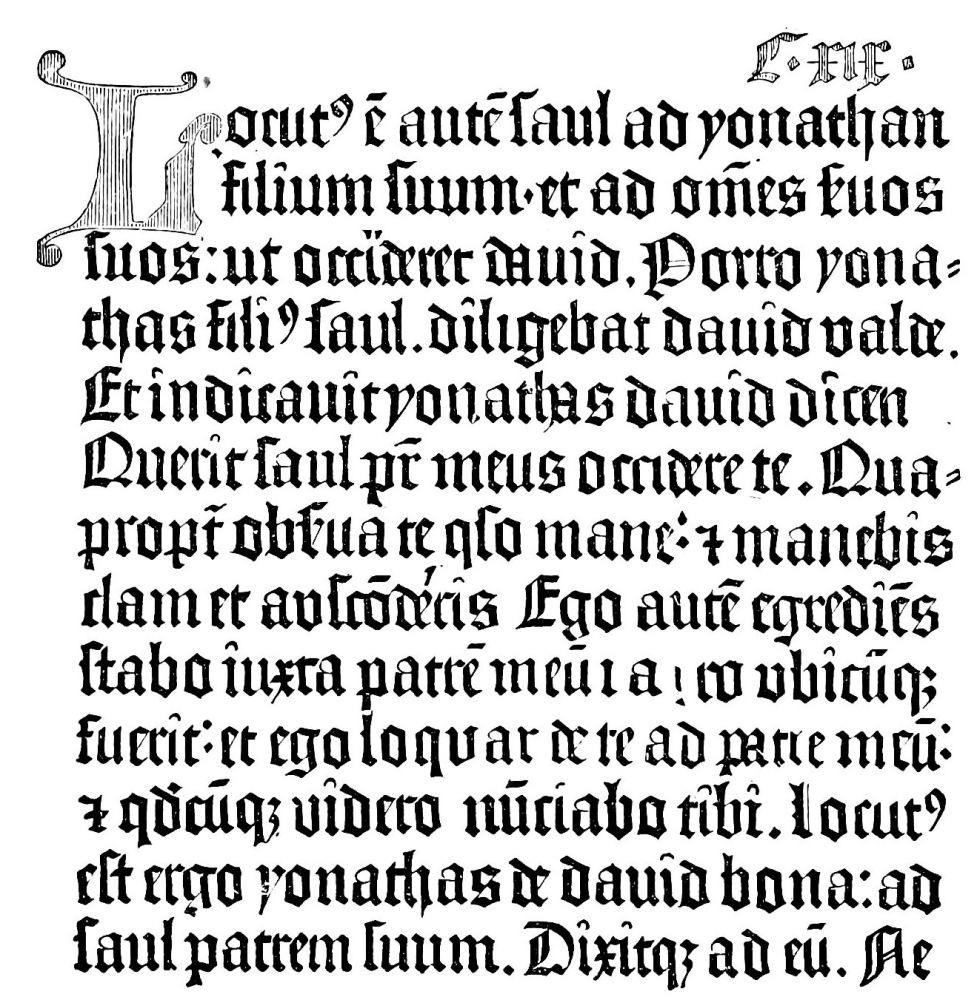 C. XIX.
Locutꝰ ē autē ſaul ad yonathan
filium ſuum·et ad om̄es ẜuos
ſuos: ut occideret dauid. Porro yona⸗
thas filiꝰ ſaul. diligebat dauid valde.
Et indicauit yonathas dauid dicen
Querit ſaul pr̄ meus occidere te. Qua⸗
propt̄ obẜua te qſo mane: ⁊ manebis
clam et abſcōderis Ego autē egrediēs
ſtabo iuxta patrē meū ı a ı co vbicūqꝫ
fuerit: et ego loquar de te ad patrē meū:
⁊ qd̛cūqꝫ videro nūciabo tibi. Locutꝰ
eſt ergo yonathas de dauid bona: ad
ſaul patrem ſuum. Dixitqꝫ ad eū. Ne